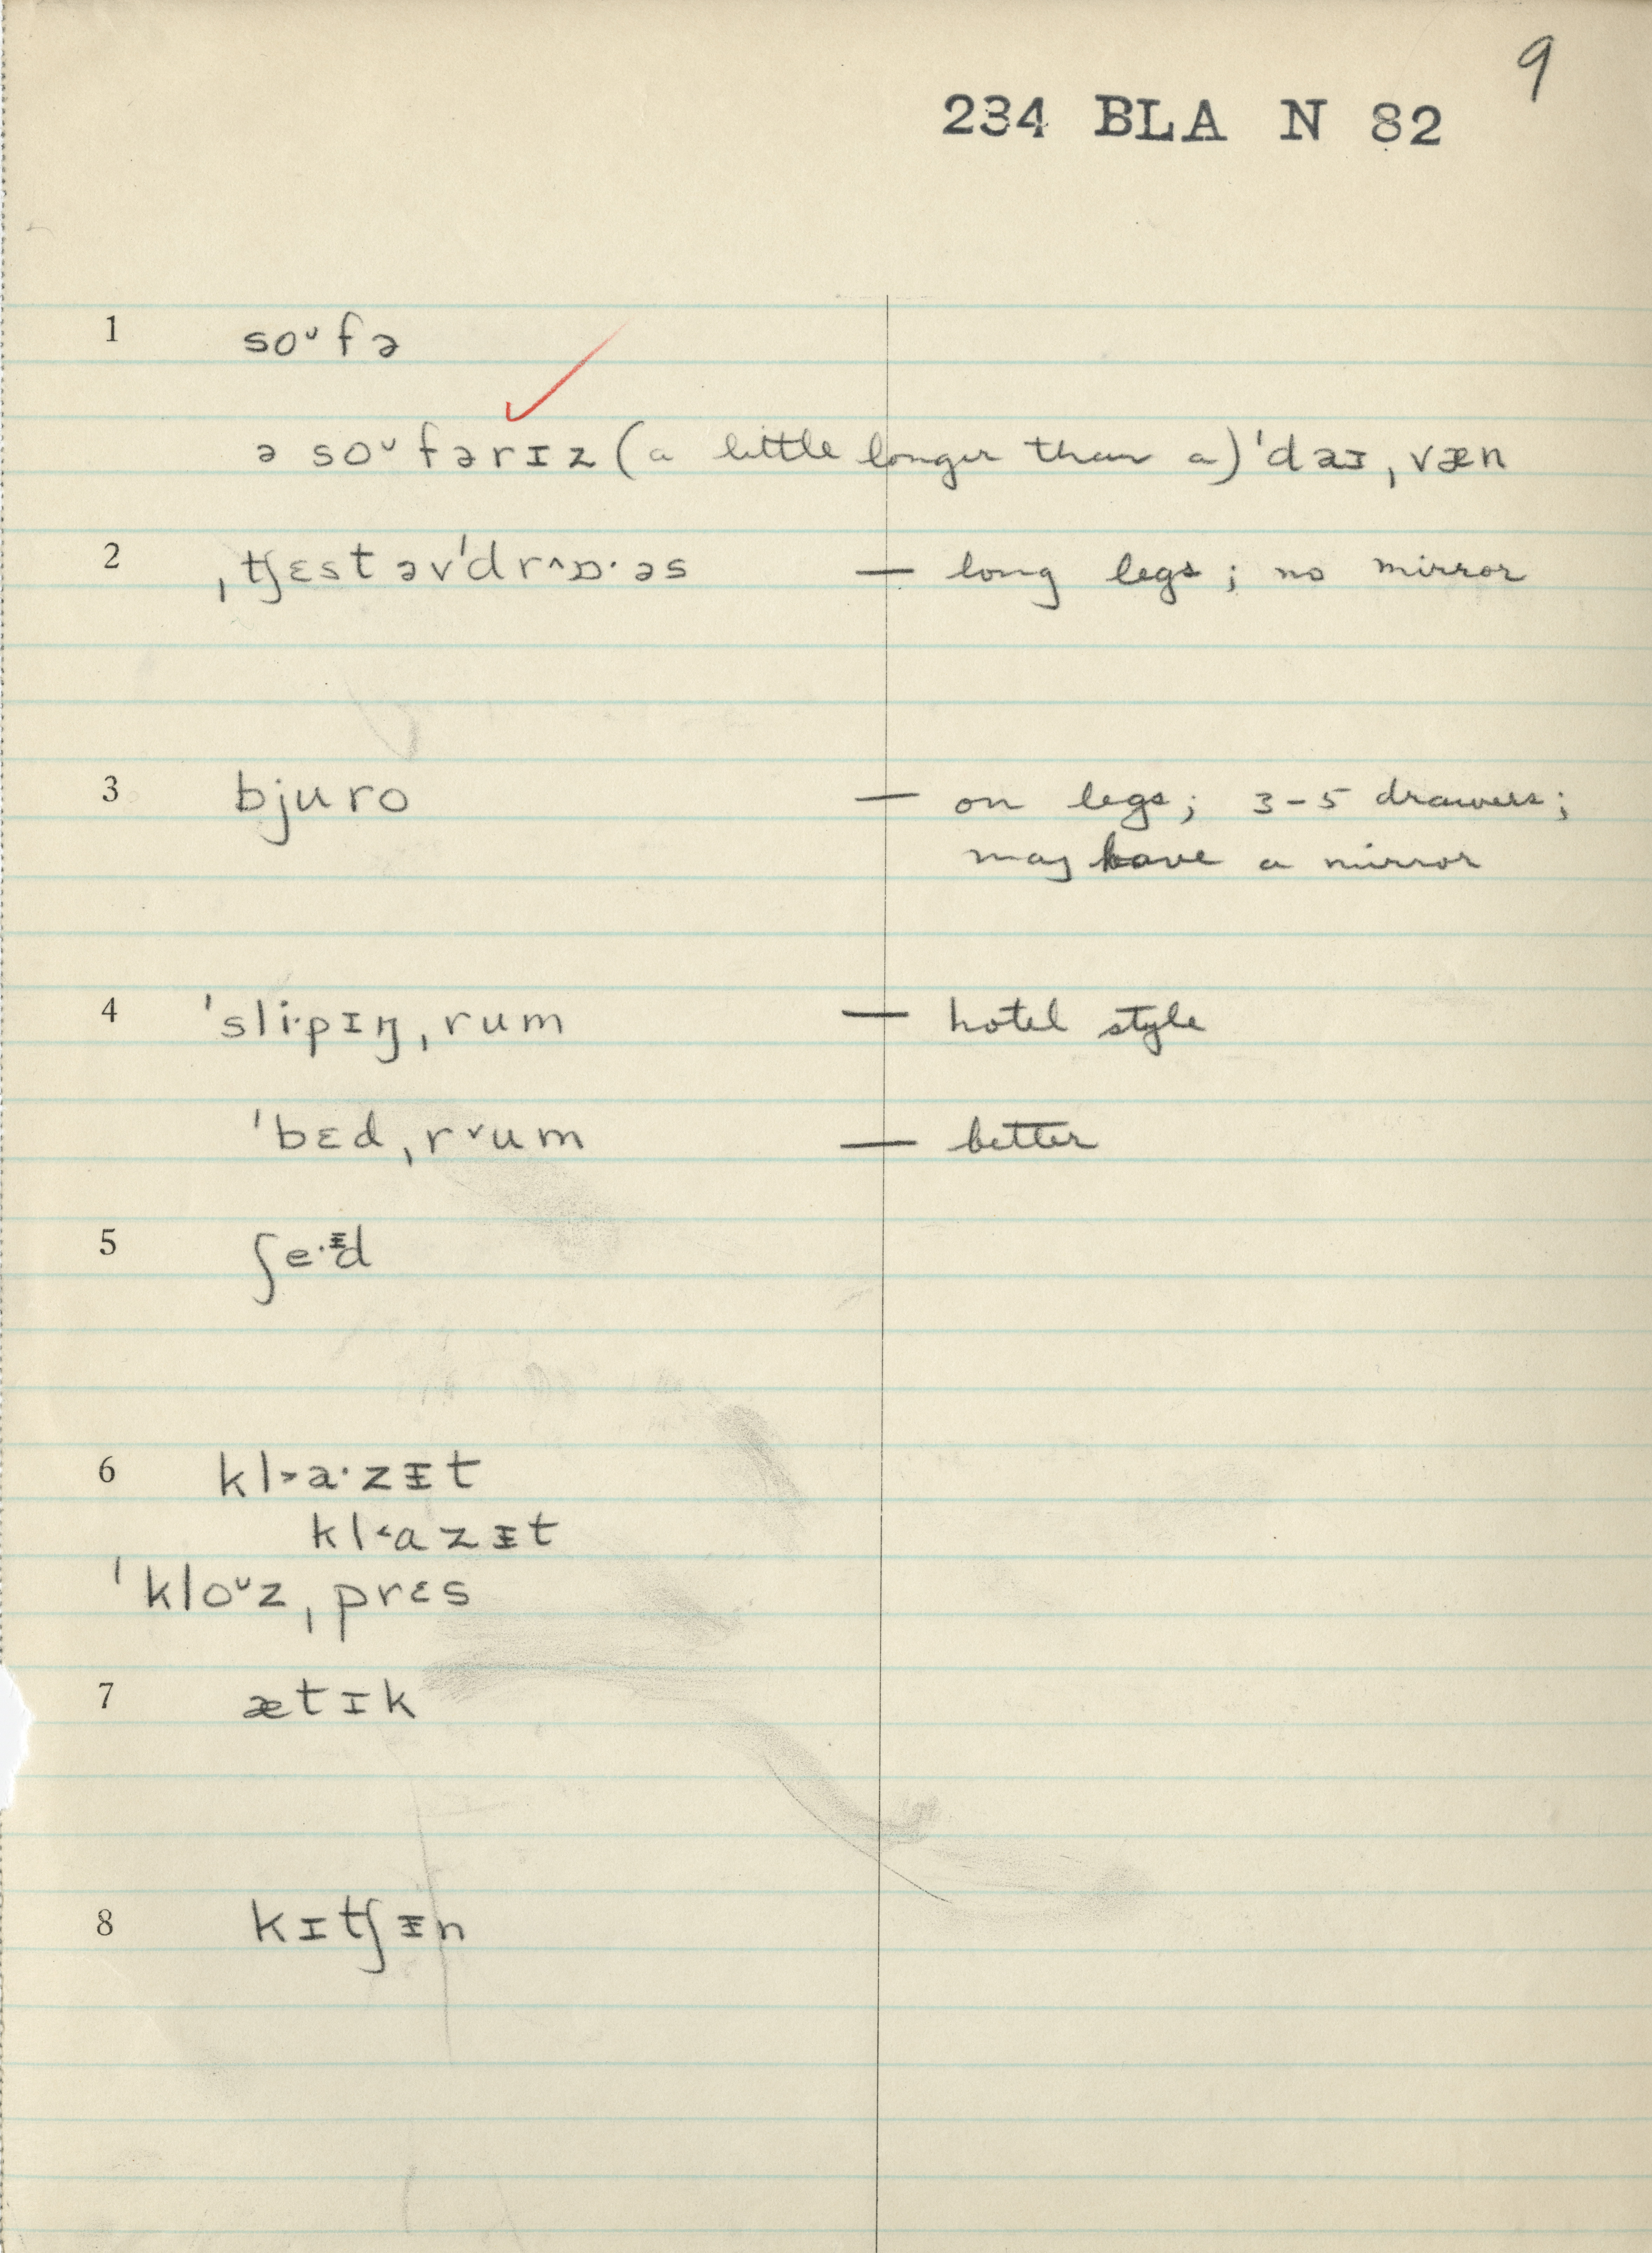 9
234 BLA N 82
1 soᶷfə
ə soᶷfərɪz (a little longer than a) ˈdaɪˌvæn
2 ˌʧɛstəvˈdr˄ɒ·əs — long legs; no mirror
3 bjuro — on legs; 3-5 drawers;
may have a mirror
4 ˈsli·pɪŋˌrum — hotel style
ˈbɛdˌr˅um — better
5 ʃe·ᵻd
6 kl˃a·zᵻt
kl˂ɑzᵻt
ˈkloᶷzˌprɛs
7 ætɪk
8 kɪʧᵻn